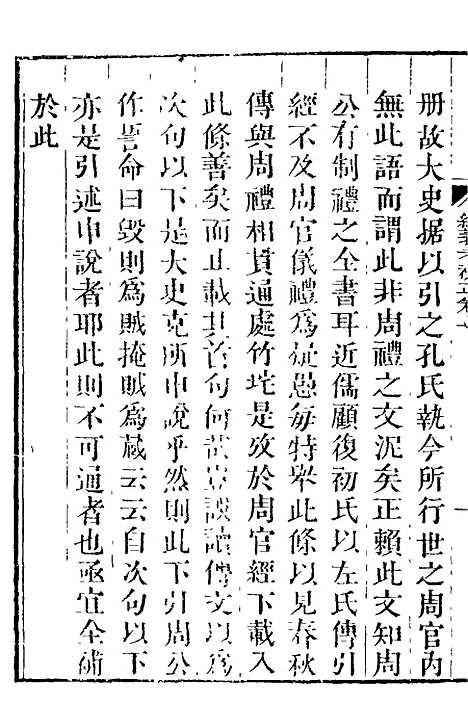 册故大史据以引之孔氏執今所行世之周官內
無此語而謂此非周禮之文泥矣正賴此文知周
公有制禮之全書耳近儒顧復初氏以左氏傳引
經不及周官儀禮為疑愚每特舉此條以見春秋
傳與周禮相貫通處竹垞是攷於周官經下載入
此條善矣而止載其首句何哉豈誤讀傳文以為
次句以下是大史克所申說乎然則此下引周公
作誓命曰毀則為賊掩賊為藏云云自次句以下
亦是引述申說者耶此則不可通者也亟宜全補
於此